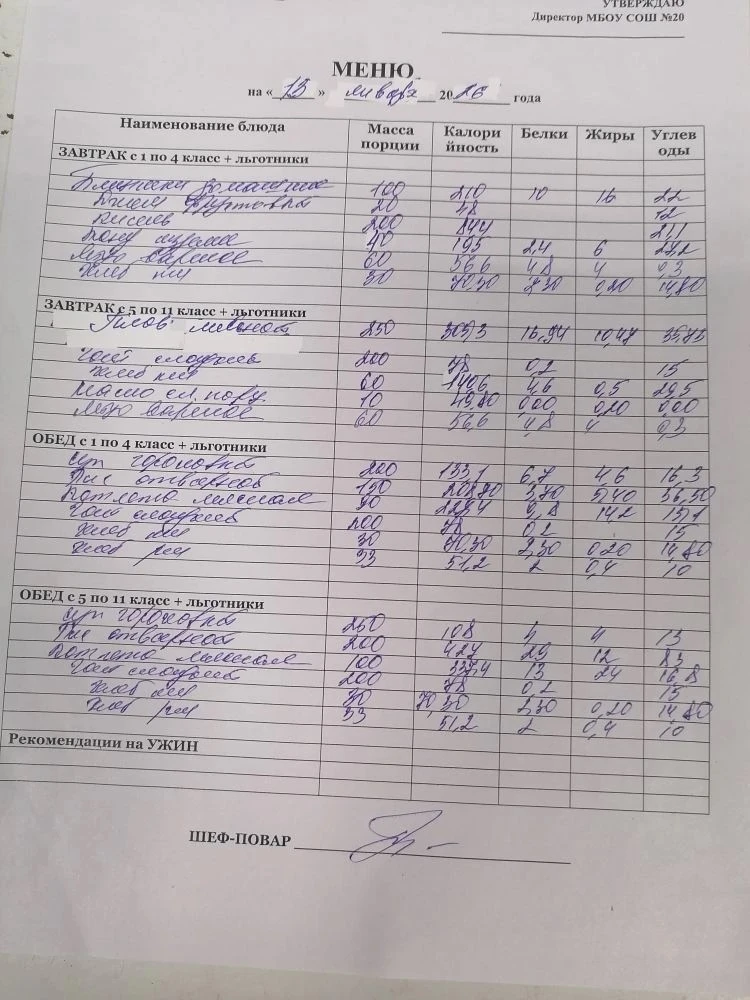 УТВЕРЖДАЮ
Директор МБОУ СОШ №20
МЕНЮ
на « 13 » января 2026 года
Наименование блюда Масса порции Калорийность Белки Жиры Углеводы
ЗАВТРАК с 1 по 4 класс + льготники
Блинчики домашние 100 210 10 16 22
Джем фруктовый 20 48 12
Кисель 200 844 21,1
40 195 2,4 6 27,2
Яйцо вареное 60 56,6 4,8 4 0,3
Хлеб 30 70,30 2,30 0,20 14,80
ЗАВТРАК с 5 по 11 класс + льготники
Плов мясной 250 309,3 16,94 10,47 35,73
Чай сладкий 200 78 0,2 15
Хлеб 60 140,6 4,6 0,5 29,5
Масло сл. 10 49,80 0,00 0,20 0,00
Яйцо вареное 60 56,6 4,8 4 0,3
ОБЕД с 1 по 4 класс + льготники
Суп гороховый 200 133,1 6,7 4,6 16,3
Рис отварной 150 208,70 3,70 5,40 36,50
Котлета мясная 90 229,4 9,8 14,2 15,1
Чай сладкий 200 78 0,2 15
Хлеб 30 70,30 2,30 0,20 14,80
Хлеб рж 33 51,2 2 0,4 10
ОБЕД с 5 по 11 класс + льготники
Суп гороховый 250 108 4 4 13
Рис отварной 200 427 29 12 83
Котлета мясная 100 337,4 13 24 16,8
Чай сладкий 200 78 0,2 15
Хлеб 30 70,30 2,30 0,20 14,80
Хлеб рж 33 51,2 2 0,4 10
Рекомендации на УЖИН
ШЕФ-ПОВАР